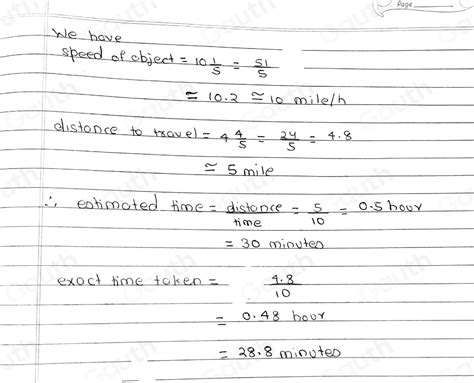 Page
We have
speed of object = 10 1/5 = 51/5
= 10.2 ≃ 10 mile/h
distance to travel = 4 4/5 = 24/5 = 4.8
≃ 5 mile
∴ estimated time = distance/time = 5/10 = 0.5 hour
= 30 minutes
exact time taken = 4.8/10
= 0.48 hour
= 28.8 minutes